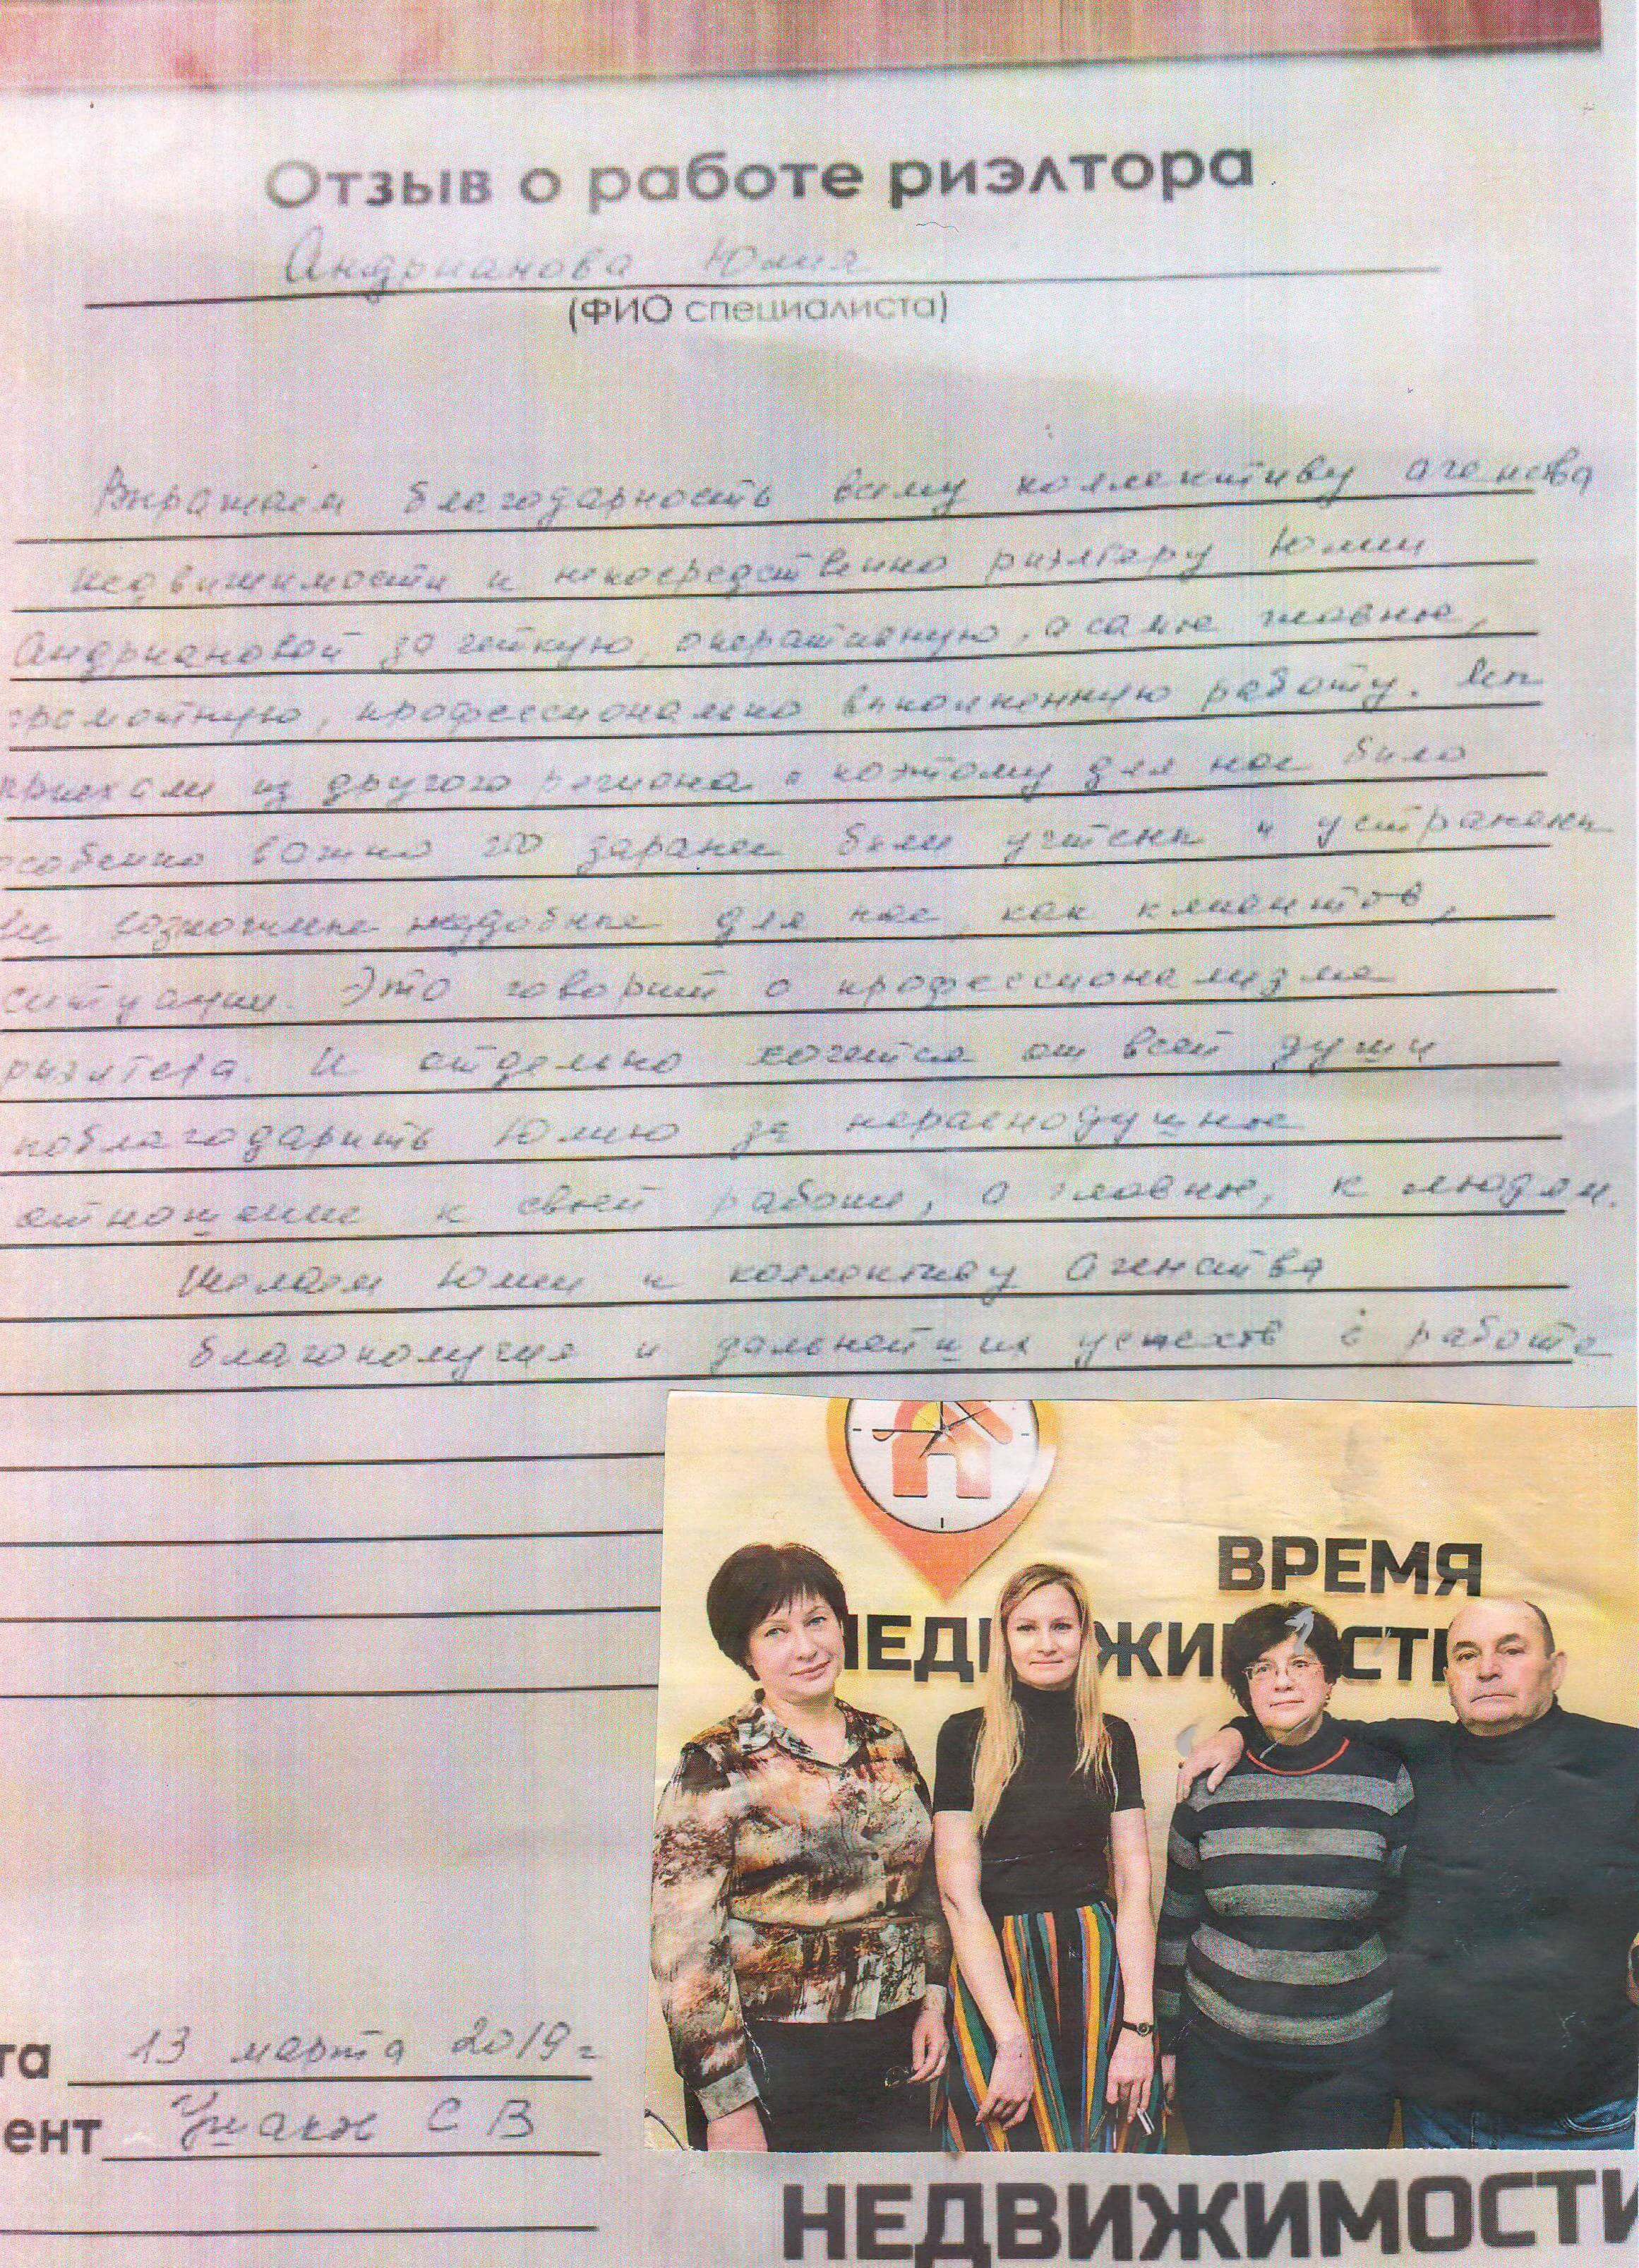 Отзыв о работе риэлтора
Андрианова Юлия
(ФИО специалиста)
Выражаем благодарность всему коллективу агенства
недвижимости и непосредственно риэлтору Юлии
Андриановой за четкую, оперативную, а самое главное,
грамотную, профессионально выполненную работу. Мы
приехали из другого региона и поэтому для нас было
особенно важно что заранее были учтены и устранены
все возможные неудобные для нас, как клиентов,
ситуации. Это говорит о профессионализме
риэлтора. И отдельно хочется от всей души
поблагодарить Юлию за неравнодушное
отношение к своей работе, а главное, к людям.
Желаем Юлии и коллективу агенства
благополучия и дальнейших успехов в работе
ВРЕМЯ
НЕДВИЖИМОСТИ
та 13 марта 2019 г
ент Ушаков С В
НЕДВИЖИМОСТИ